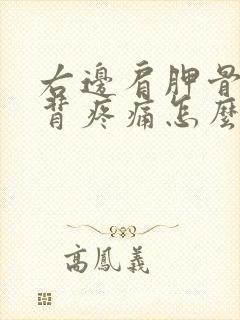 右邊肩胛骨
背疼痛怎麼
高鳳義